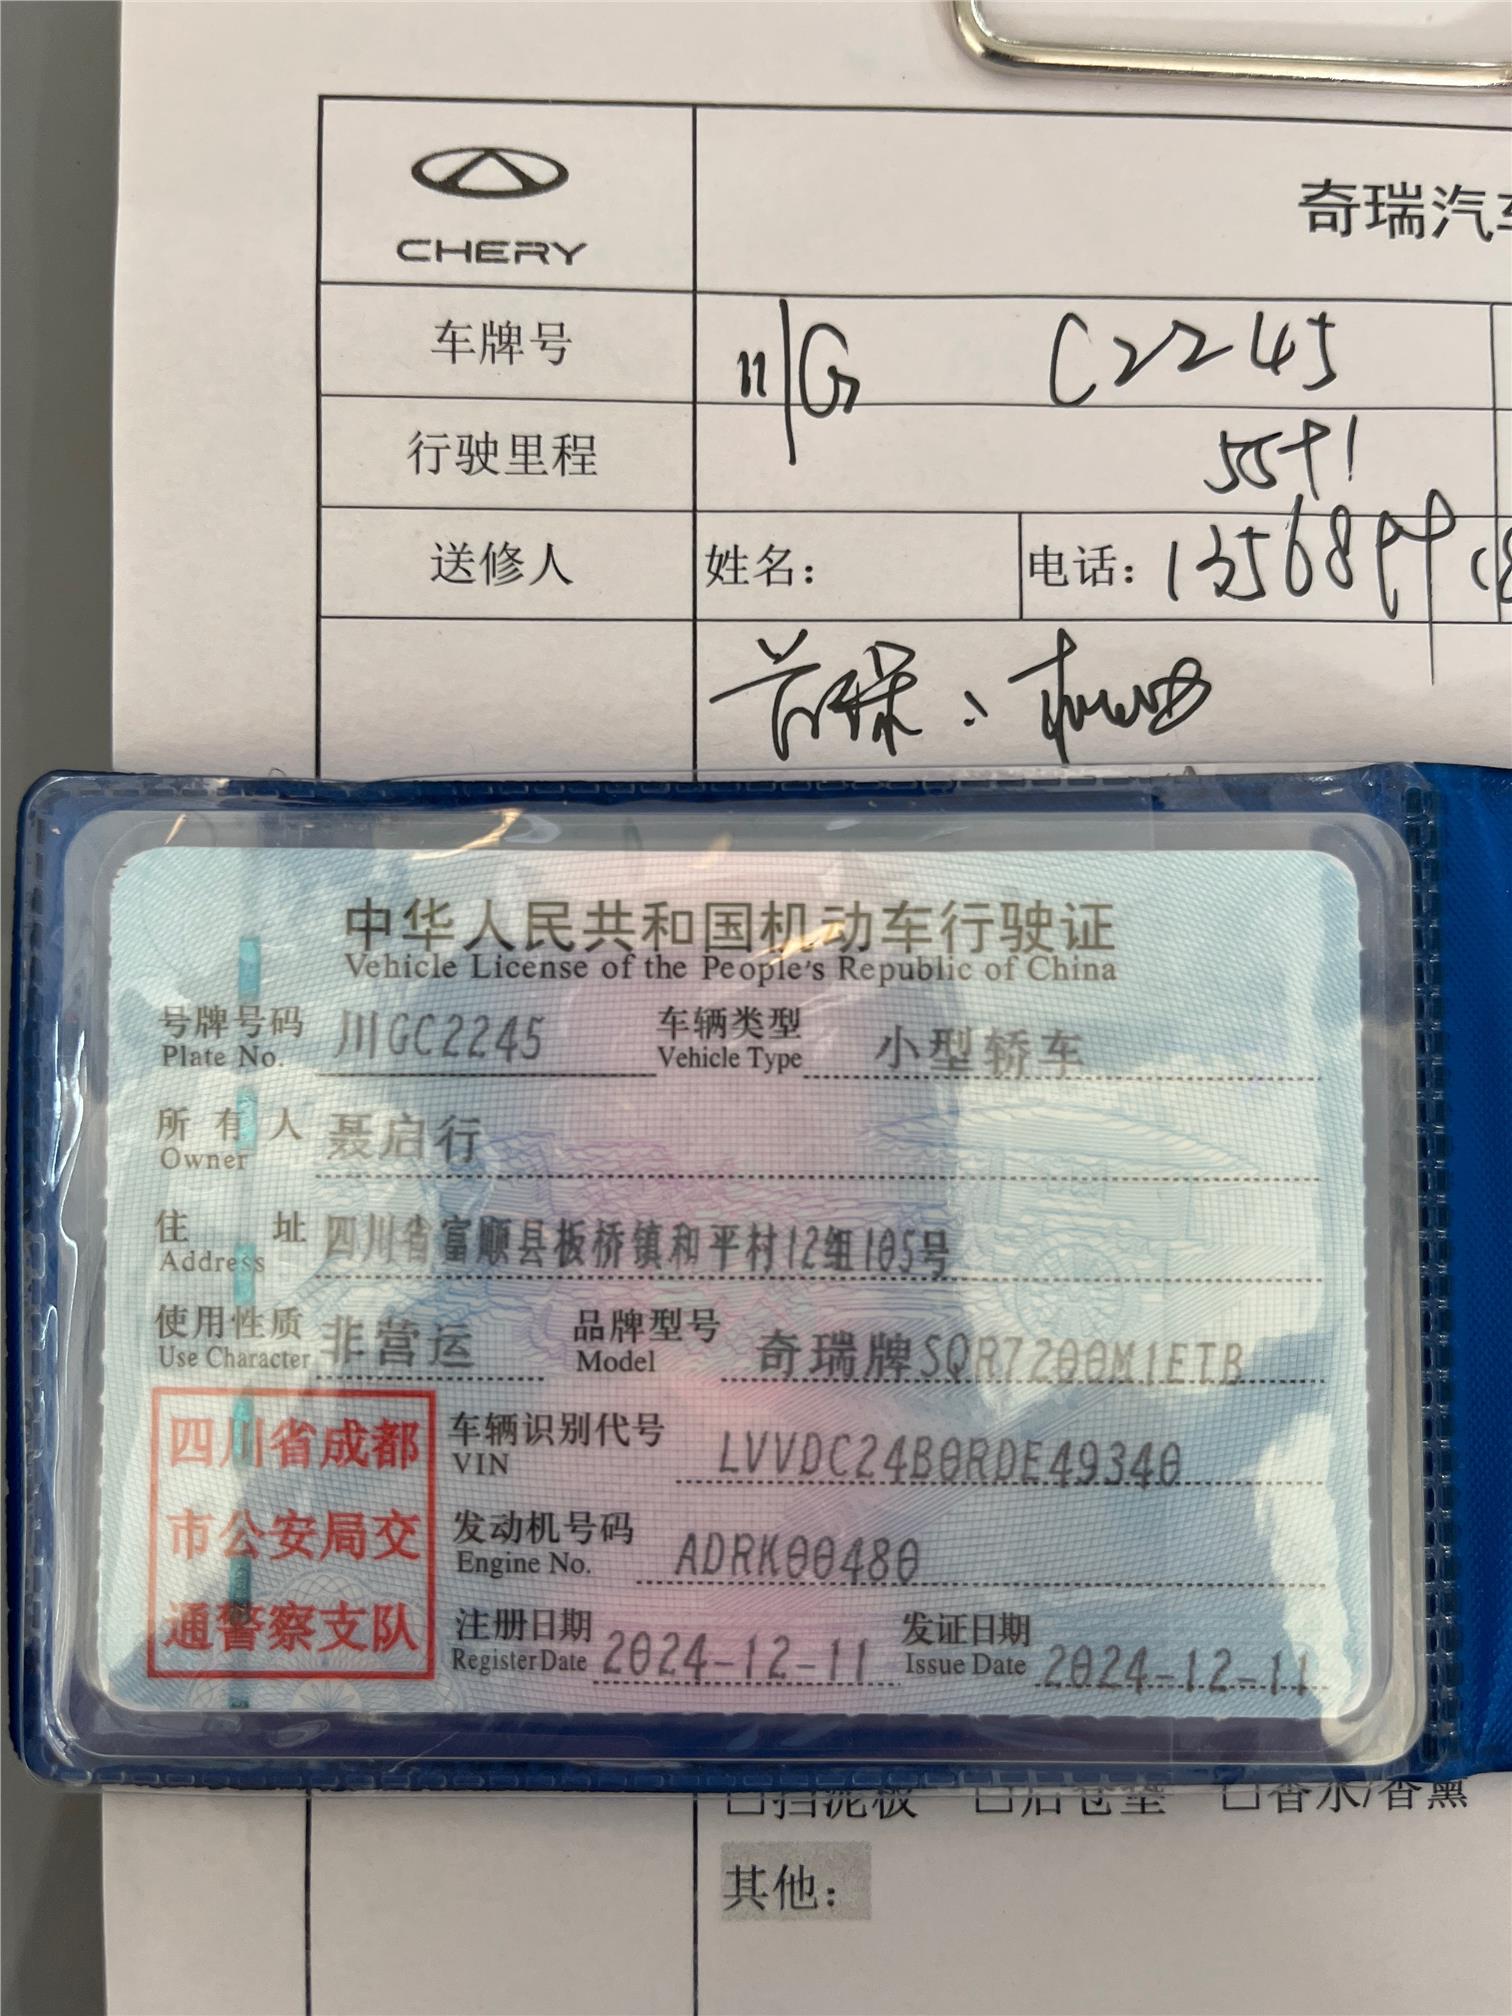 CHERY
奇瑞汽车
车牌号 川G C2245
行驶里程
送修人 姓名： 电话：
首保：机油
中华人民共和国机动车行驶证
Vehicle License of the People's Republic of China
号牌号码 川GC2245 车辆类型 小型轿车
Plate No. Vehicle Type
所有人 聂启行
Owner
住址 四川省富顺县板桥镇和平村12组105号
Address
使用性质 非营运 品牌型号 奇瑞牌SQR7200M1ETB
Use Character Model
四川省成都
市公安局交
通警察支队
车辆识别代号 LVVDC24B0RDE49340
VIN
发动机号码 ADRK00480
Engine No.
注册日期 2024-12-11 发证日期 2024-12-11
Register Date Issue Date
□挡泥板 □后仓垫 □香水/香熏
其他：